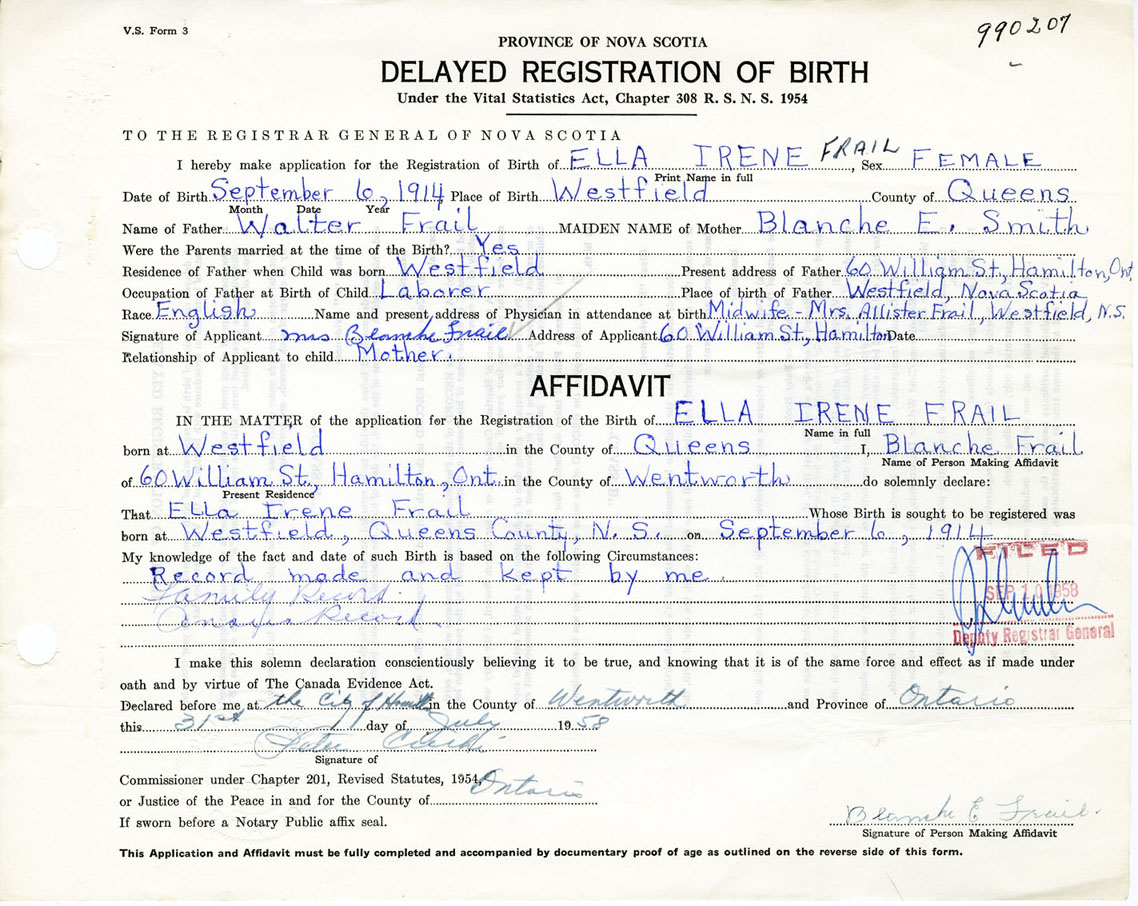 V.S. Form 3
990207
PROVINCE OF NOVA SCOTIA
DELAYED REGISTRATION OF BIRTH
Under the Vital Statistics Act, Chapter 308 R. S. N. S. 1954
TO THE REGISTRAR GENERAL OF NOVA SCOTIA
I hereby make application for the Registration of Birth of ELLA IRENE FRAIL, Sex FEMALE
Print Name in full
Date of Birth September 6, 1914 Place of Birth Westfield County of Queens
Month Date Year
Name of Father Walter Frail MAIDEN NAME of Mother Blanche E. Smith
Were the Parents married at the time of the Birth? Yes
Residence of Father when Child was born Westfield Present address of Father 60 William St., Hamilton, Ont
Occupation of Father at Birth of Child Laborer Place of birth of Father Westfield, Nova Scotia
Race English Name and present address of Physician in attendance at birth Midwife - Mrs. Allister Frail, Westfield, N.S.
Signature of Applicant Mrs Blanche Frail Address of Applicant 60 William St., Hamilton Date
Relationship of Applicant to child Mother.
AFFIDAVIT
IN THE MATTER of the application for the Registration of the Birth of ELLA IRENE FRAIL
Name in full
born at Westfield in the County of Queens I, Blanche Frail
Name of Person Making Affidavit
of 60 William St., Hamilton, Ont. in the County of Wentworth do solemnly declare:
Present Residence
That Ella Irene Frail Whose Birth is sought to be registered was
born at Westfield, Queens County, N. S. on September 6, 1914
My knowledge of the fact and date of such Birth is based on the following Circumstances:
Record made and kept by me.
Family Record.
Record.
FILED
SEP 10 1958
Deputy Registrar General
I make this solemn declaration conscientiously believing it to be true, and knowing that it is of the same force and effect as if made under
oath and by virtue of The Canada Evidence Act.
Declared before me at the City of Hamilton in the County of Wentworth and Province of Ontario
this 31st day of July 1958
Peter
Signature of
Commissioner under Chapter 201, Revised Statutes, 1954, Ontario
or Justice of the Peace in and for the County of
If sworn before a Notary Public affix seal.
Blanche E Frail.
Signature of Person Making Affidavit
This Application and Affidavit must be fully completed and accompanied by documentary proof of age as outlined on the reverse side of this form.